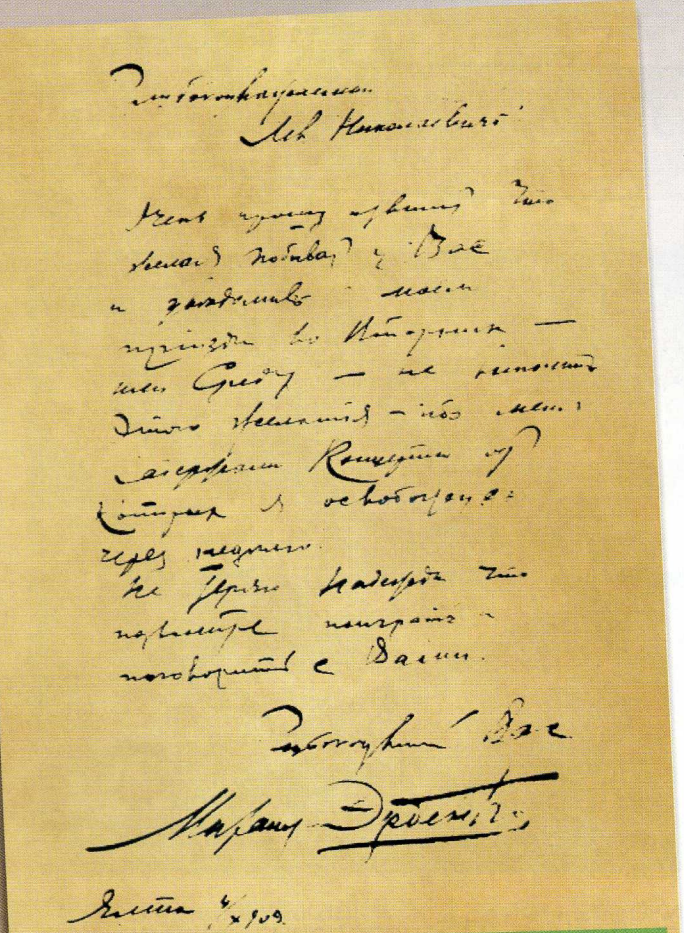 Глубокоуважаемый
Левъ Николаевичъ!
Очень прошу извинить что
желая побывать у Васъ
и уведомивъ о моемъ
приезде во Вторникъ —
или Среду — не выполнилъ
этого желанія — ибо меня
задержали Концерты от
которых я освобожусь
через неделю.
Не теряю надежды что
позволите поиграть и
поговорить с Вами.
Глубокочтущий Васъ
Михаил Эрденко
Ялта X 909.